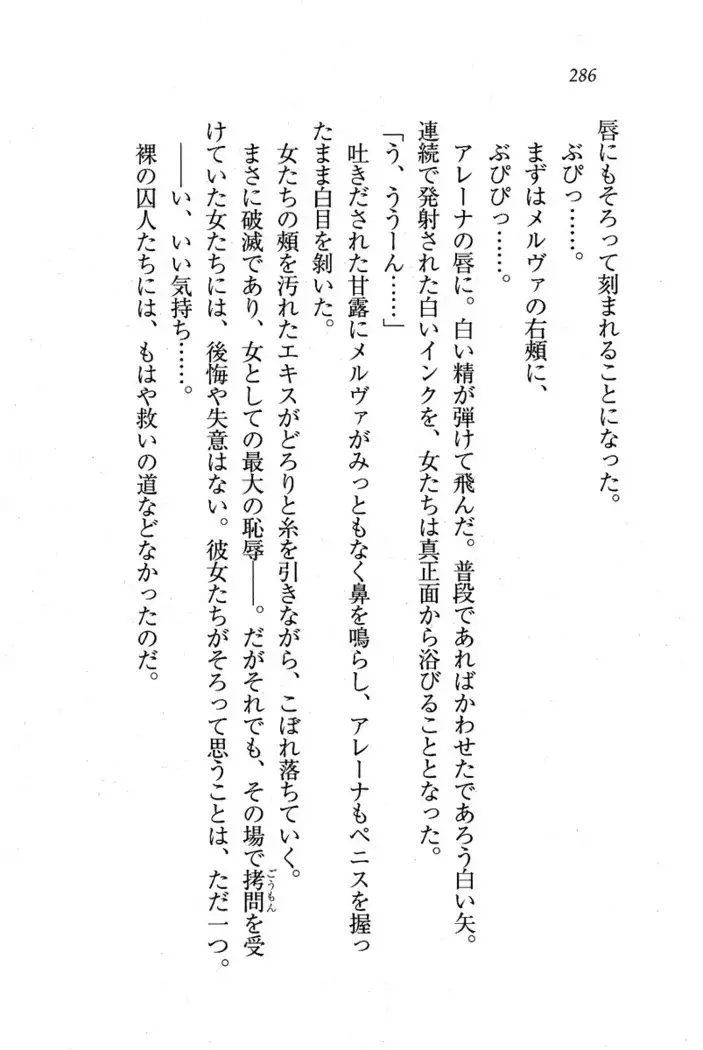 286
唇にもそろって刻まれることになった。
ぶぴっ……。
まずはメルヴァの右頰に、
ぶぴぴっ……。
アレーナの唇に。白い精が弾けて飛んだ。普段であればかわせたであろう白い矢。
連続で発射された白いインクを、女たちは真正面から浴びることとなった。
「う、ううーん……」
吐きだされた甘露にメルヴァがみっともなく鼻を鳴らし、アレーナもペニスを握っ
たまま白目を剝いた。
女たちの頰を汚れたエキスがどろりと糸を引きながら、こぼれ落ちていく。
まさに破滅であり、女としての最大の恥辱――。だがそれでも、その場で拷問ごうもんを受
けていた女たちには、後悔や失意はない。彼女たちがそろって思うことは、ただ一つ。
――い、いい気持ち……。
裸の囚人たちには、もはや救いの道などなかったのだ。